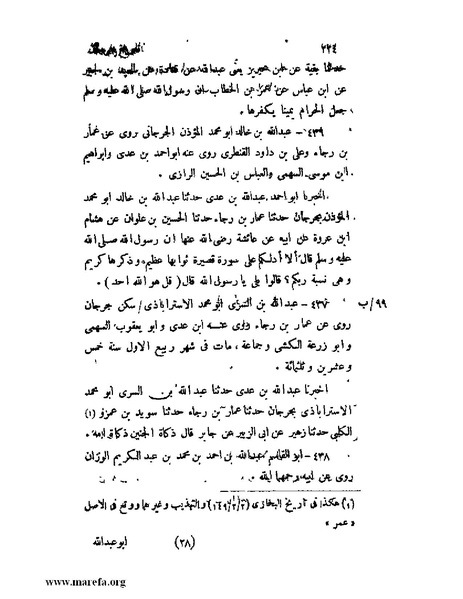 ٢٢٤
حدثنا بقية عن يعنى عبد الله عن قتادة عن بن جبير
عن ابن عباس عن عمر بن الخطاب ان رسول الله صلى الله عليه وسلم
جعل الحرام يمينا يكفرها .
٤٣٩ – عبدالله بن خالد ابو محمد المؤذن الجرجانى روى عن عمار
بن رجاء وعلى بن داود القنطرى روى عنه ابو احمد بن عدى وابراهيم
ابن موسى السهمى والعباس بن الحسين الرازى .
اخبرنا ابو احمد عبدالله بن عدى حدثنا عبد الله بن خالد ابو محمد
المؤذن بجرجان حدثنا عمار بن رجاء حدثنا الحسين بن علوان عن هشام
ابن عروة عن ابيه عن عائشة رضى الله عنها ان رسول الله صلى الله
عليه وسلم قال ألا أدلكم على سورة قصيرة ثوابها عظيم وذكرها كريم
وهى نسبة ربكم؟ قالوا بلى يا رسول الله قال ( قل هو الله احد ) .
٩٩/ب ٤٣٧ – عبدالله بن السرى ابو محمد الاستراباذى سكن جرجان
روى عن عمار بن رجاء روى عنه ابن عدى و ابو يعقوب السهمى
و ابو زرعة الكشى وجماعة ، مات فى شهر ربيع الاول سنة خمس
وعشرين و ثلثمائة .
اخبرنا عبدالله بن عدى حدثنا عبد الله بن السرى ابو محمد
الاستراباذى بجرجان حدثنا عمار بن رجاء حدثنا سويد بن عمرو (١)
الكلبى حدثنا زهير عن ابى الزبير عن جابر قال ذكاة الجنين ذكاة امه .
٤٣٨ – ابو القاسم عبدالله بن احمد بن محمد بن عبد الكريم الوزان
روى عن ابيه رحمهما الله
(١) هكذا فى تاريخ البخارى (١٤٩/٢/٢) والتهذيب وغيرهما ووقع فى الاصل
« عمر »
(٢٨) ابو عبدالله
www.marefa.org